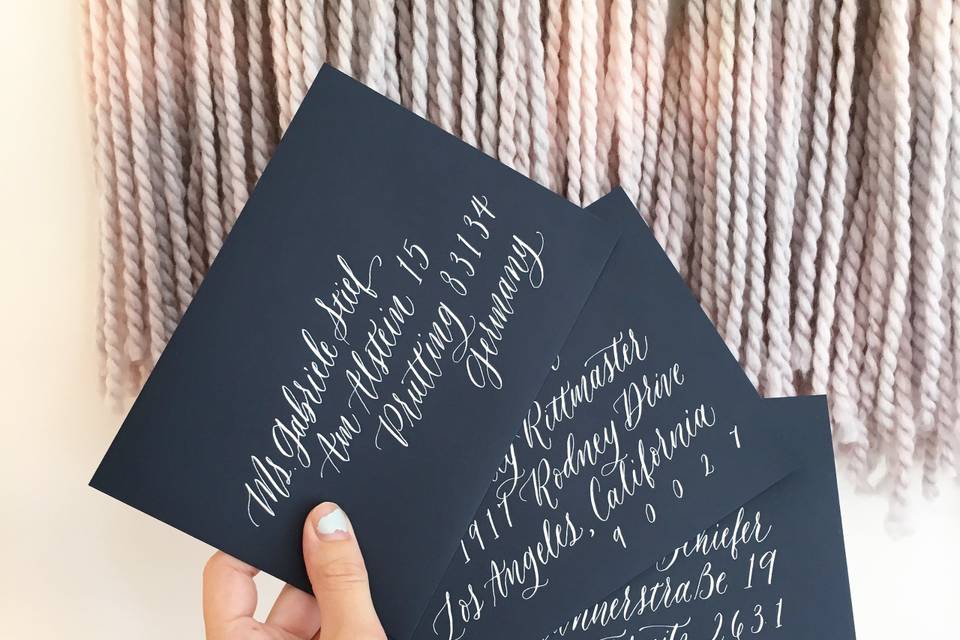 Ms. Gabriele Stief
Am Alstein 15
Prutting 83134
Germany
Rittmaster
1917 Rodney Drive
Los Angeles, California
9 0 0 2 7
19
2631